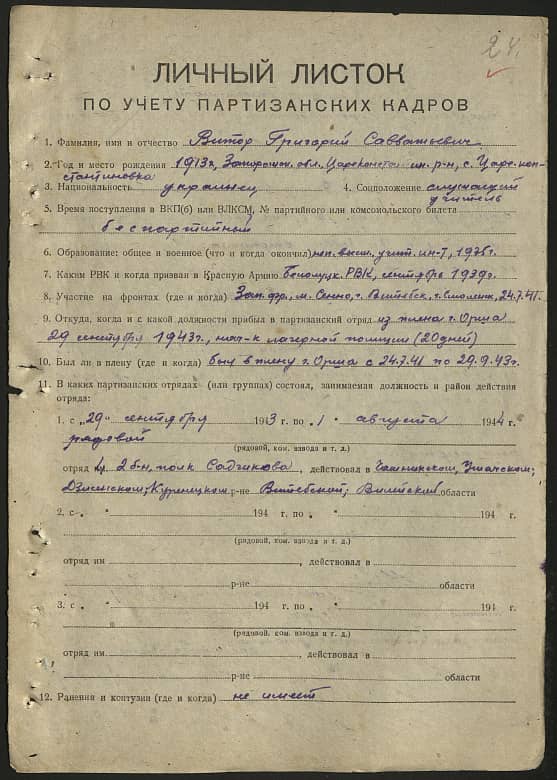 24.
ЛИЧНЫЙ ЛИСТОК
ПО УЧЕТУ ПАРТИЗАНСКИХ КАДРОВ
1. Фамилия, имя и отчество Витор Григорий Савватьевич
2. Год и место рождения 1913г., Запорожск. обл. р-н, с. Царе-кон-
стантиновка
3. Национальность украинец 4. Соцположение служащий
учитель
5. Время поступления в ВКП(б) или ВЛКСМ, № партийного или комсомольского билета
беспартийный
6. Образование: общее и военное (что и когда окончил) неп. высш., учит. ин-т, 1935г.
7. Каким РВК и когда призван в Красную Армию РВК, сентябрь 1939г.
8. Участие на фронтах (где и когда) Зап. фр., м. Сенно, г. Витебск, г. Смоленск, 24.7.41г.
9. Откуда, когда и с какой должности прибыл в партизанский отряд из плена г. Орша
29 сентября 1943г., нач-к лагерной полиции (20 дней)
10. Был ли в плену (где и когда) был в плену г. Орша с 24.7.41 по 29.9.43г.
11. В каких партизанских отрядах (или группах) состоял, занимаемая должность и район действия
отряда:
1. с „29" сентября 1943 г. по „1" августа 1944 г.
рядовой
(рядовой, ком. взвода и т. д.)
отряд 2 б-н, полк Садчикова, действовал в Чашникском, Ушачском,
Дзисненском, Куренецком р-не Витебской, Вилейской области
2. с „ " 194 г. по „ " 194 г.
(рядовой, ком. взвода и т. д.)
отряд им , действовал в
р-не области
3. с „ " 194 г. по „ " 194 г.
(рядовой, ком. взвода и т. д.)
отряд им , действовал в
р-не области
12. Ранения и контузии (где и когда) не имеет